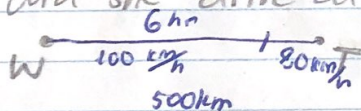 6hr
W 100 km/h 80km/h T
500km